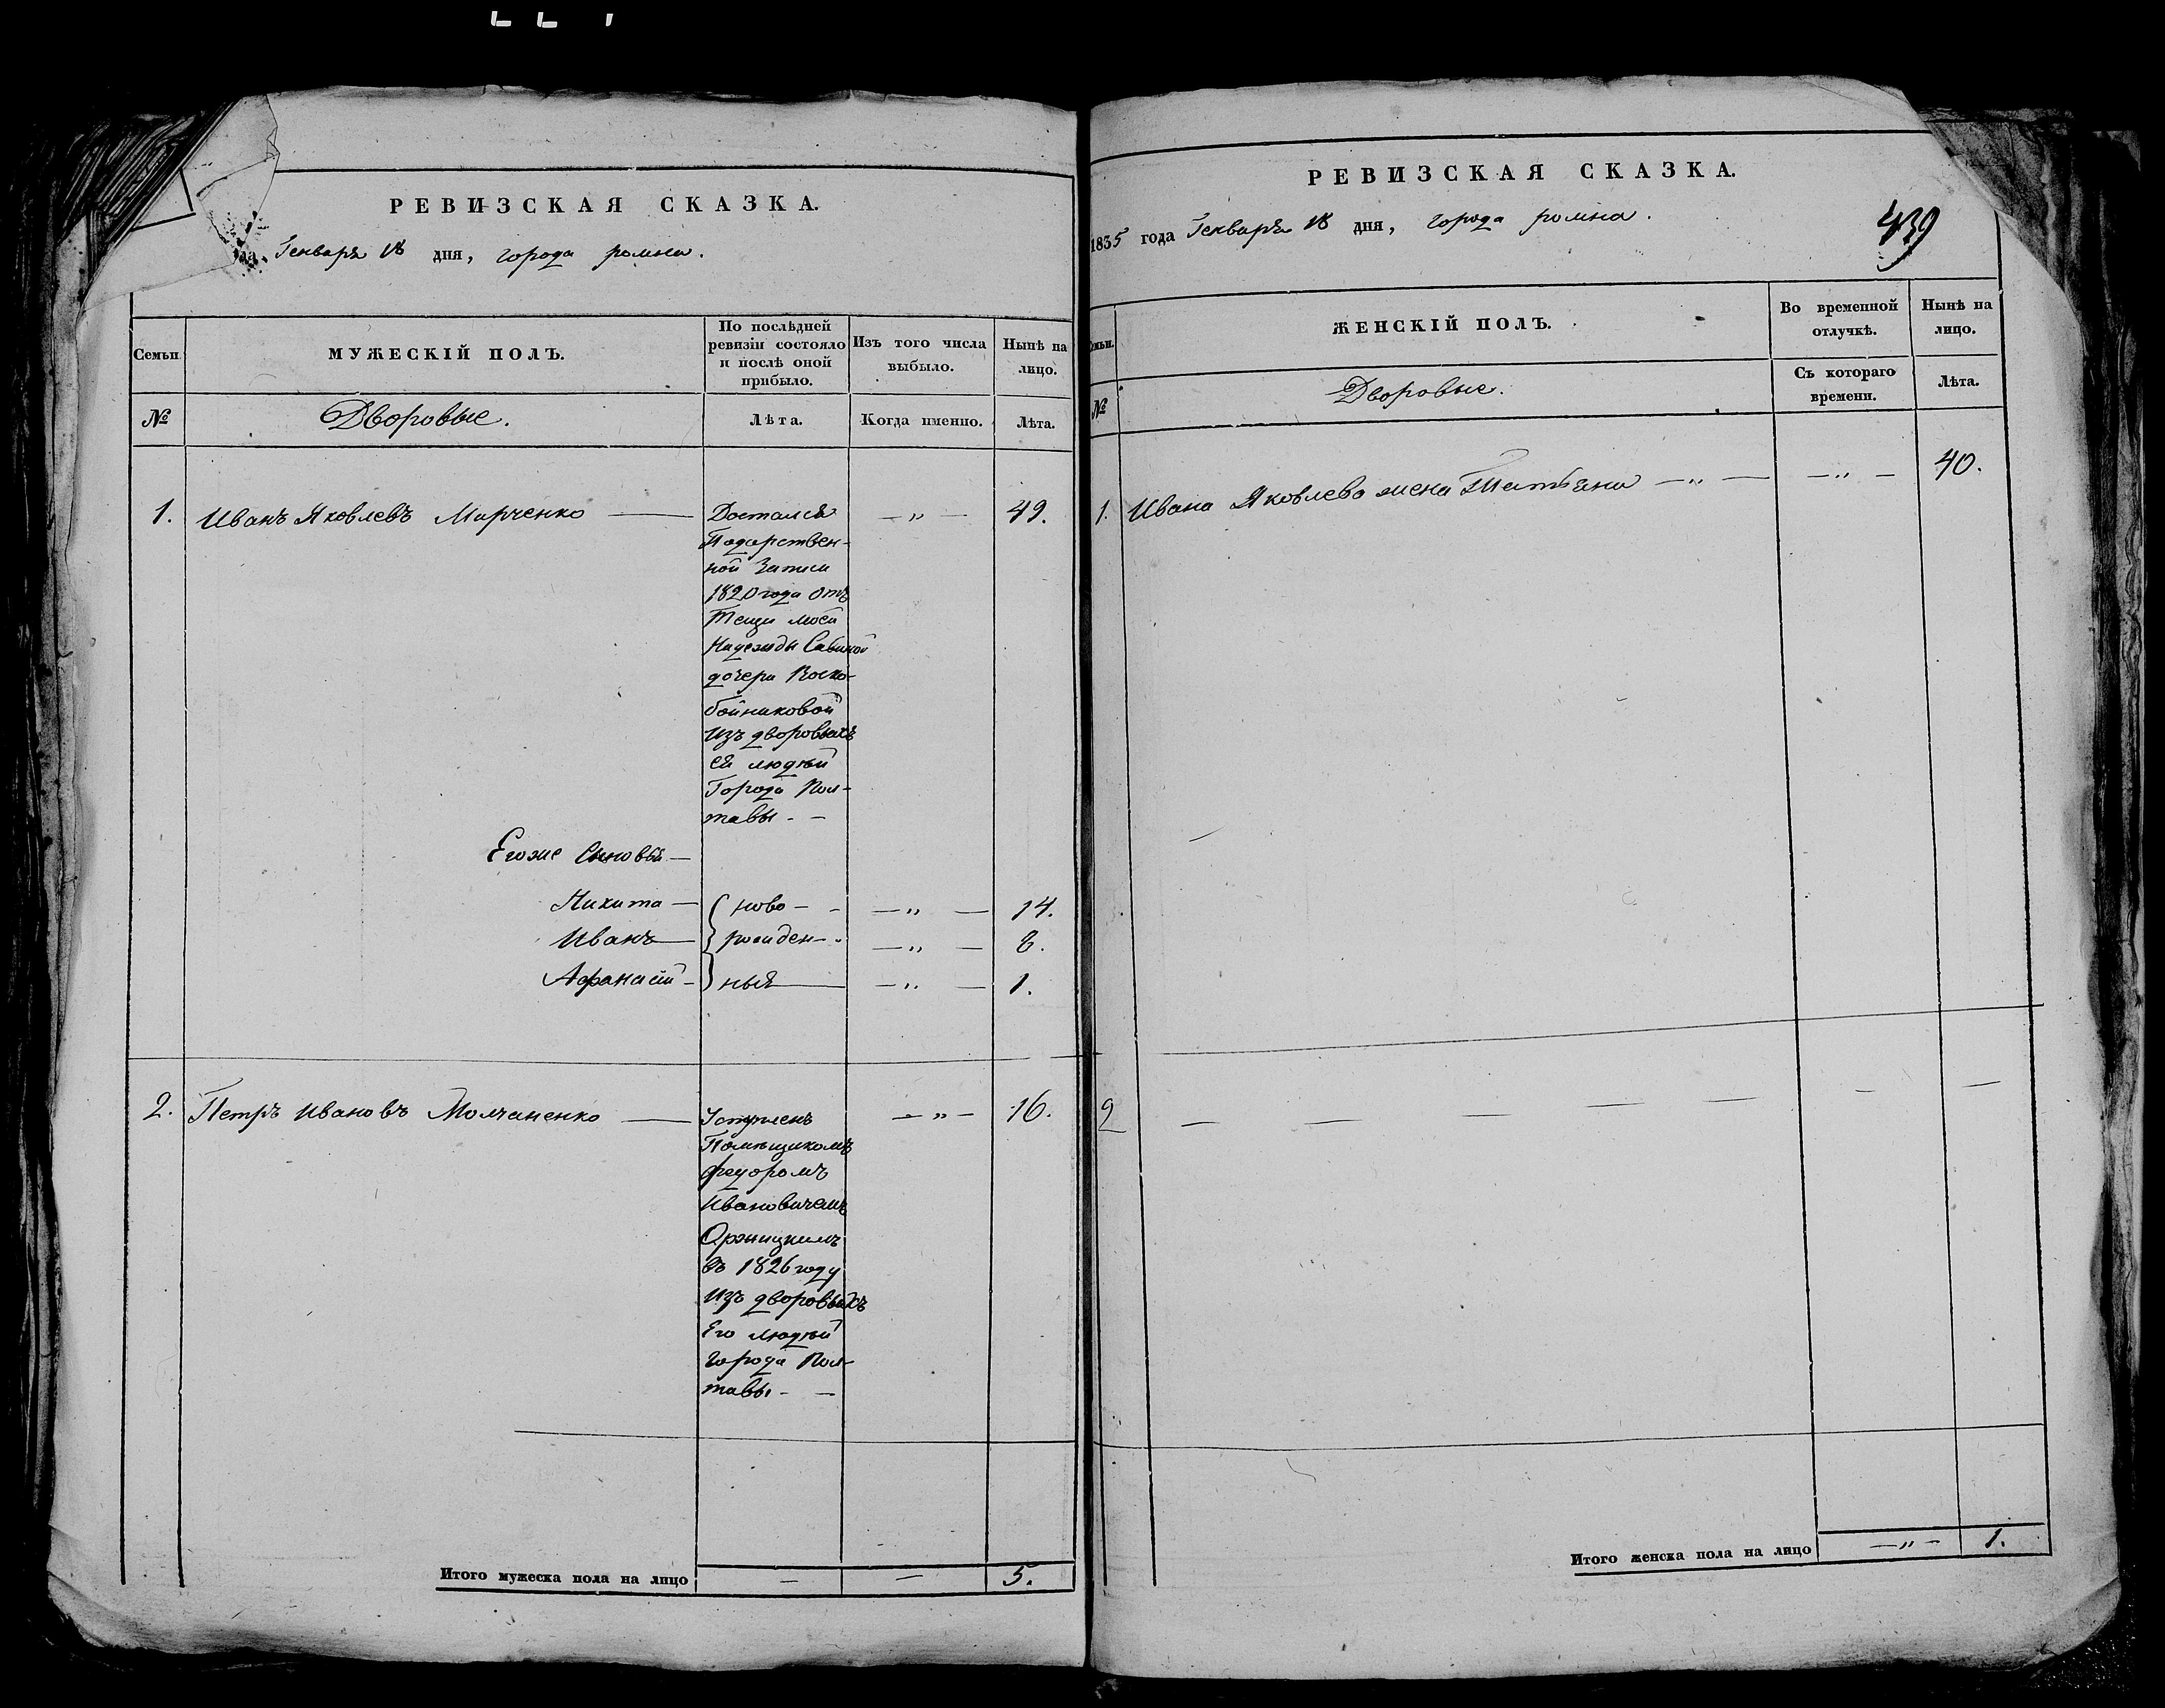 РЕВИЗСКАЯ СКАЗКА.
Генваря 18 дня, города ромна.
Семьи.
МУЖЕСКІЙ ПОЛЪ.
По послѣдней ревизіи состояло и послѣ оной прибыло.
Изъ того числа выбыло.
Нынѣ на лицо.
№
Дворовые.
Лѣта.
Когда именно.
Лѣта.
1. Иванъ Яковлевъ Марченко — Достался —„— 49.
Подарствен-
ной Записи
1820 года отъ
Тещи моей
Надежды Савиной
дочери Воско-
бойниковой
Изъ дворовыхъ
ея людѣй
Города Пол-
тавы - —
Егоже Сыновья —
Никита — ново - - —„— 14.
Иванъ — рожден- - —„— 8.
Афанасій — ныя — —„— 1.
2. Петръ Ивановъ Молчаненко — Уступленъ —„— 16.
Помѣщикомъ
Федоромъ
Ивановичемъ
Оржицкимъ
въ 1826 году
Изъ дворовыхъ
Его людѣй
города Пол-
тавы - —
Итого мужеска пола на лицо — — 5.
РЕВИЗСКАЯ СКАЗКА.
1835 года Генваря 18 дня, города ромна.
439
Семьи.
ЖЕНСКІЙ ПОЛЪ.
Во временной отлучкѣ.
Нынѣ на лицо.
№
Дворовые.
Съ котораго времени.
Лѣта.
1. Ивана Яковлева жена Татьяна —„— —„— 40.
2 — — — — — — —
Итого женска пола на лицо —„— 1.